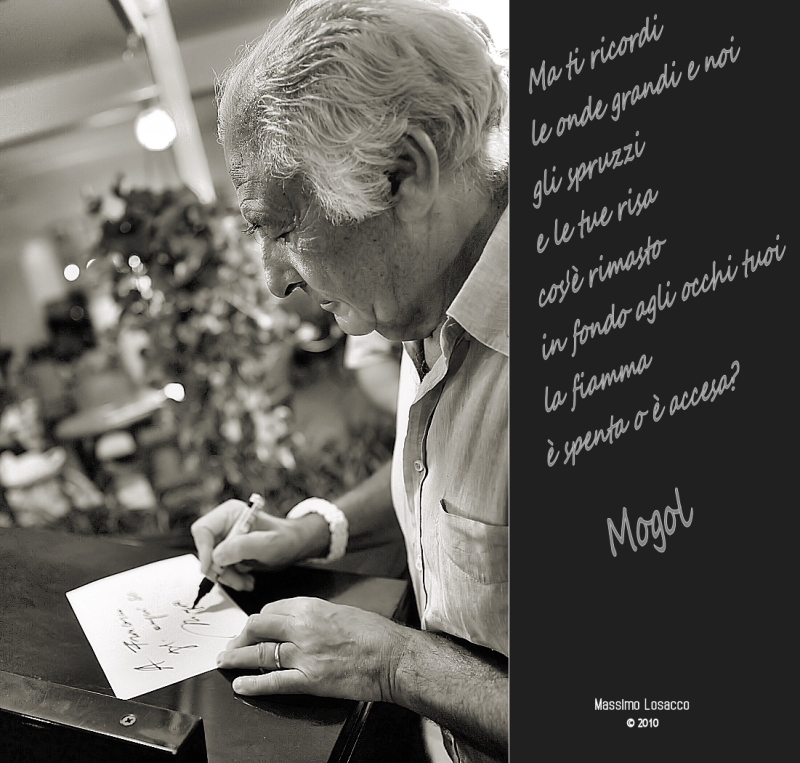 Ma ti ricordi
le onde grandi e noi
gli spruzzi
e le tue risa
cos'è rimasto
in fondo agli occhi tuoi
la fiamma
è spenta o è accesa?
Mogol
Massimo Losacco
© 2010
A